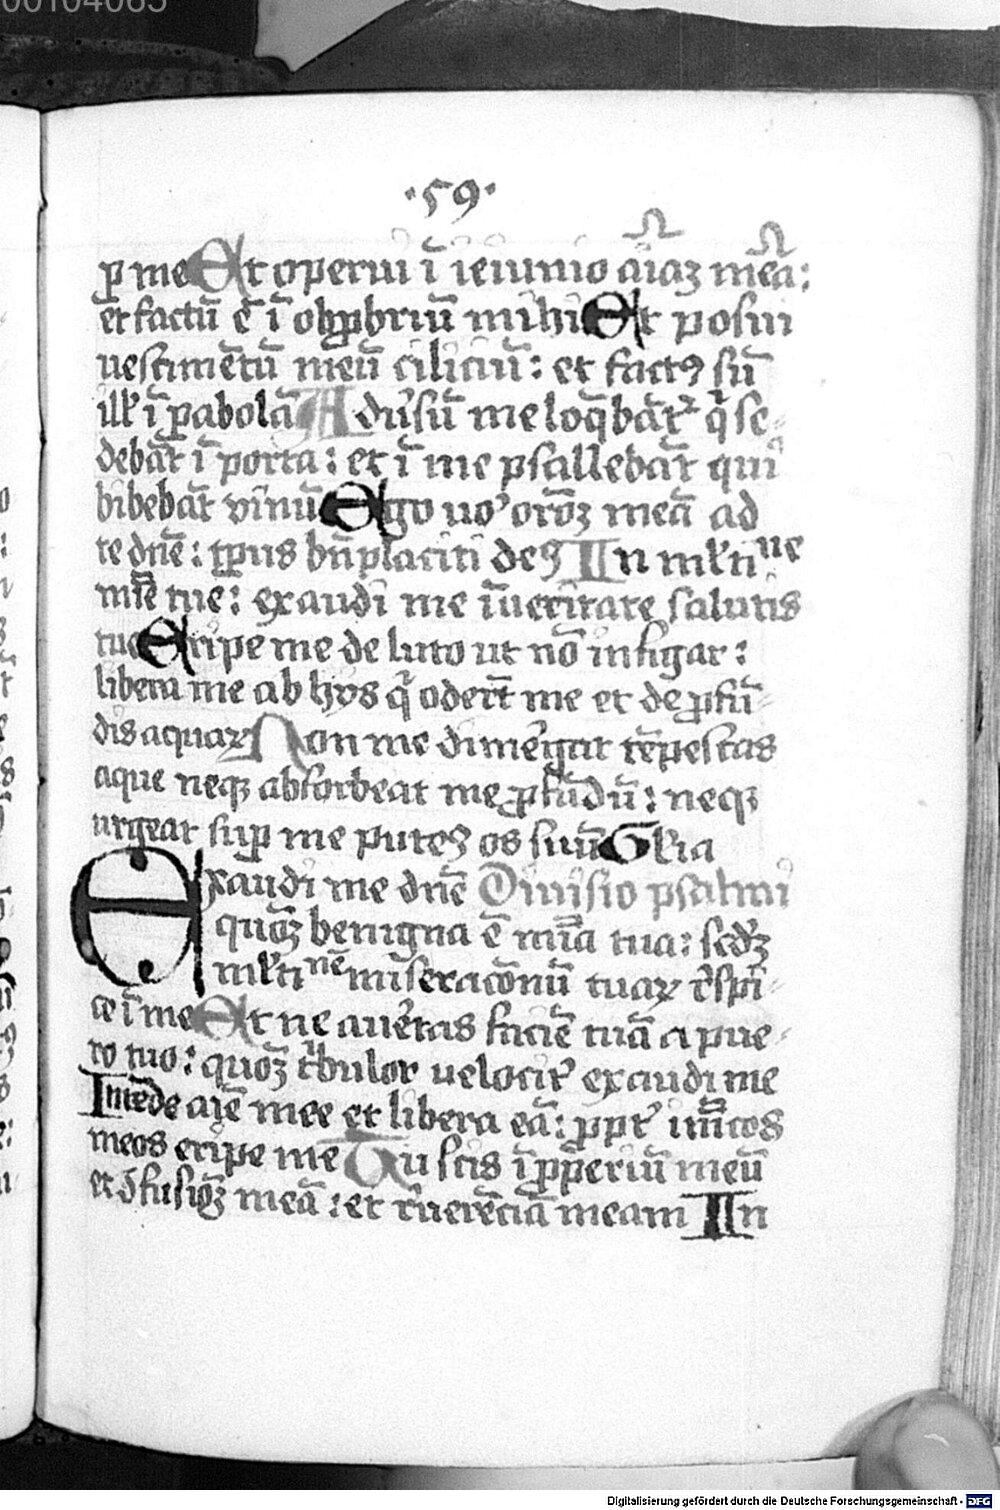 00104065
·59·
ꝑ me Et operui ī ieiunio aı̄aꝫ mēā:
et factū ē ī obꝓbriū mihi Et posui
uestimētū meū ciliciū: et factꝰ sū
ill' ī ꝑabolā Aduͥsū me loq̄bāt᷑ q̇ se-
debāt ī porta: et ī me psallebāt qui
bibebāt vinū Ego uo' orōꝫ meā ad
te dn̄e: tp̄us bn̄placiti deꝰ In ml'tine
mīe tue: exaudi me ī ueritate salutis
tue Eripe me de luto ut nō infigar:
libera me ab hys q̇ oderūt me et de ꝓfū-
dis aquaꝝ Non me dimergat tēpestas
aque neqꝫ absorbeat me ꝓfūdū: neqꝫ
urgeat suꝑ me puteꝰ os suū Gl'ia
Exaudi me dn̄e Diuisio psalmi
quōꝫ benigna ē mīa tua: scd̄ꝫ
ml'tinē miseracōnū tuaꝝ r̄spi-
ce ī me Et ne auertas faciē tuā a pue-
ro tuo: quōꝫ tͥbulor velocit᷑ exaudi me
Intēde aīe mee et libera eā: ꝓpt᷑ inīcos
meos eripe me Tu scis īꝓperiū meū
et ꝯfusiōꝫ meā: et r̄uerēciā meam In
Digitalisierung gefördert durch die Deutsche Forschungsgemeinschaft - DFG